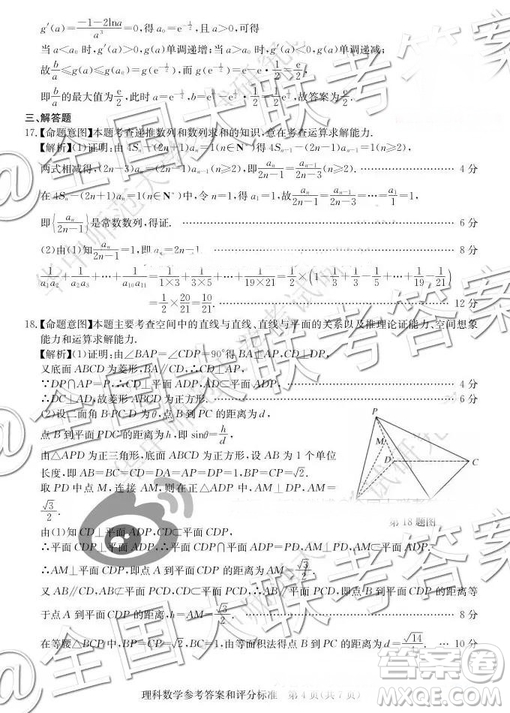 g′(a)=(-1-2lna)/a³=0,得 a₀=e^(-1/2),且 a>0,可得
当 a<a₀ 时,g′(a)>0,g(a)单调递增;当 a>a₀ 时,g′(a)<0,g(a)单调递减;
即 b/a 的最大值为 e/2,
三、解答题
17.【命题意图】本题考查递推数列和数列求和的知识,意在考查运算求解能力.
【解析】(1)证明:由 4Sₙ-(2n+1)aₙ=1(n∈N*)得 4Sₙ₋₁-(2n-1)aₙ₋₁=1(n≥2).
两式相减得,(2n-3)aₙ=(2n-1)aₙ₋₁(n≥2). 4 分
在 4Sₙ-(2n+1)aₙ=1(n∈N*)中,令 n=1,得 a₁=1,故 aₙ/(2n-1)=aₙ₋₁/(2n-3)=…=a₁/1=1,
即{aₙ/(2n-1)}是常数数列,得证. 6 分
(2)由(1)知 aₙ/(2n-1)=1,即 aₙ=2n-1, 8 分
1/(a₁a₂)+1/(a₂a₃)+…+1/(a₁₀a₁₁)=1/(1×3)+1/(3×5)+…+1/(19×21)=1/2×(1-1/3+1/3-1/5+…+1/19-1/21)
=1/2×20/21=10/21. 12 分
18.【命题意图】本题主要考查空间中的直线与直线、直线与平面的关系以及推理论证能力、空间想象
能力和运算求解能力.
【解析】(1)证明:由∠BAP=∠CDP=90°得 BA⊥AP,CD⊥DP.
又底面 ABCD 为菱形,BA∥CD,∴CD⊥AP.
∵DP∩AP=P,∴CD⊥平面 ADP,AD⊂平面 ADP, 4 分
∴DC⊥AD,故底面 ABCD 为正方形. 6 分
(2)设二面角 B-PC-D 为θ,点 B 到 PC 的距离为 d,
点 B 到平面 PDC 的距离为 h,即 sinθ=h/d.
由△APD 为正三角形,底面 ABCD 为正方形,设 AB 为 1 个单位
长度,即 AB=BC=CD=DA=AP=DP=1,BP=CP=√2.
取 PD 中点 M,连接 AM,则在正△ADP 中,AM⊥DP,AM=
√3/2.
P
M
C
第 18 题图
由(1)知 CD⊥平面 ADP,CD⊂平面 CDP,
∴平面 CDP⊥平面 ADP,∵平面 CDP∩平面 ADP=DP,AM⊥PD,AM⊂平面 ADP,
∴AM⊥平面 CDP,即点 A 到平面 CDP 的距离为 AM=√3/2.
又 AB∥CD,AB⊄平面 PCD,CD⊂平面 PCD,∴AB∥平面 PCD,即点 B 到平面 CDP 的距离等
于点 A 到平面 CDP 的距离,h=AM=√3/2. 8 分
在等腰△BCP 中,BP=CP=√2,BC=1,由等面积法得点 B 到 PC 的距离为 d=√14/4. 10 分
理科数学参考答案和评分标准 第 4 页(共 7 页)
@全国大联考答案